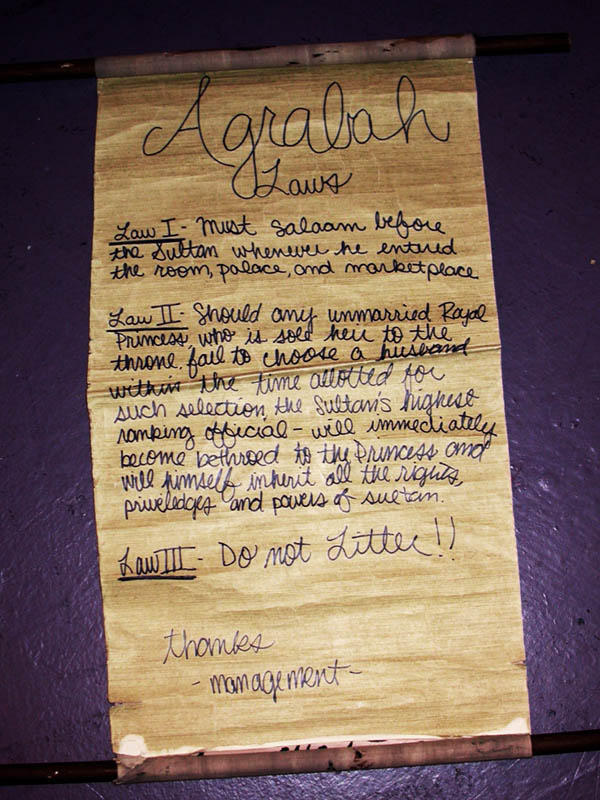 Agrabah
Laws
Law I - Must salaam before
the Sultan whenever he entered
the room, palace, and marketplace
Law II - Should any unmarried Royal
Princess who is sole heir to the
throne, fail to choose a husband
within the time allotted for
such selection, the Sultan's highest
ranking official - will immediately
become bethroed to the Princess and
will himself inherit all the rights,
priveledges and powers of sultan.
Law III - Do not Litter!!
thanks
- management -